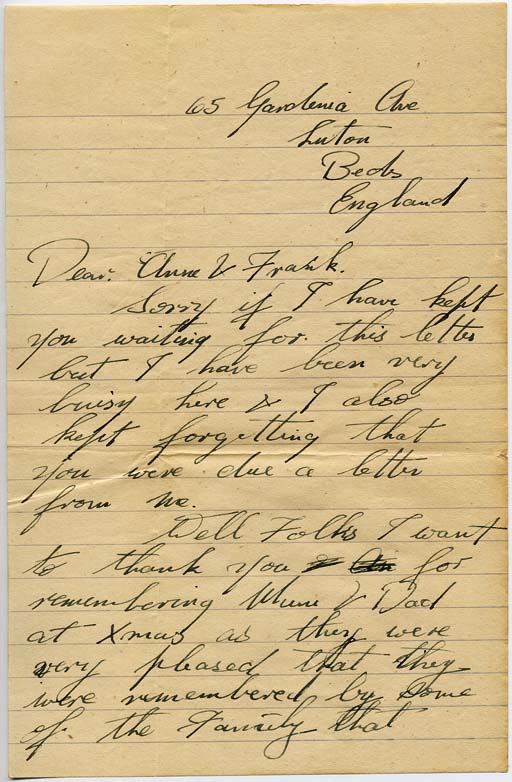 65 Gardenia Ave
Luton
Beds
England
Dear. Anne & Frank.
Sorry if I have kept
you waiting for. this letter
but I have been very
buisy here & I also
kept forgetting that
you were due a letter
from me.
Well Folks I want
to thank you & An for
remembering Mum & Dad
at Xmas as they were
very pleased that they
were remembered by some
of the Family that